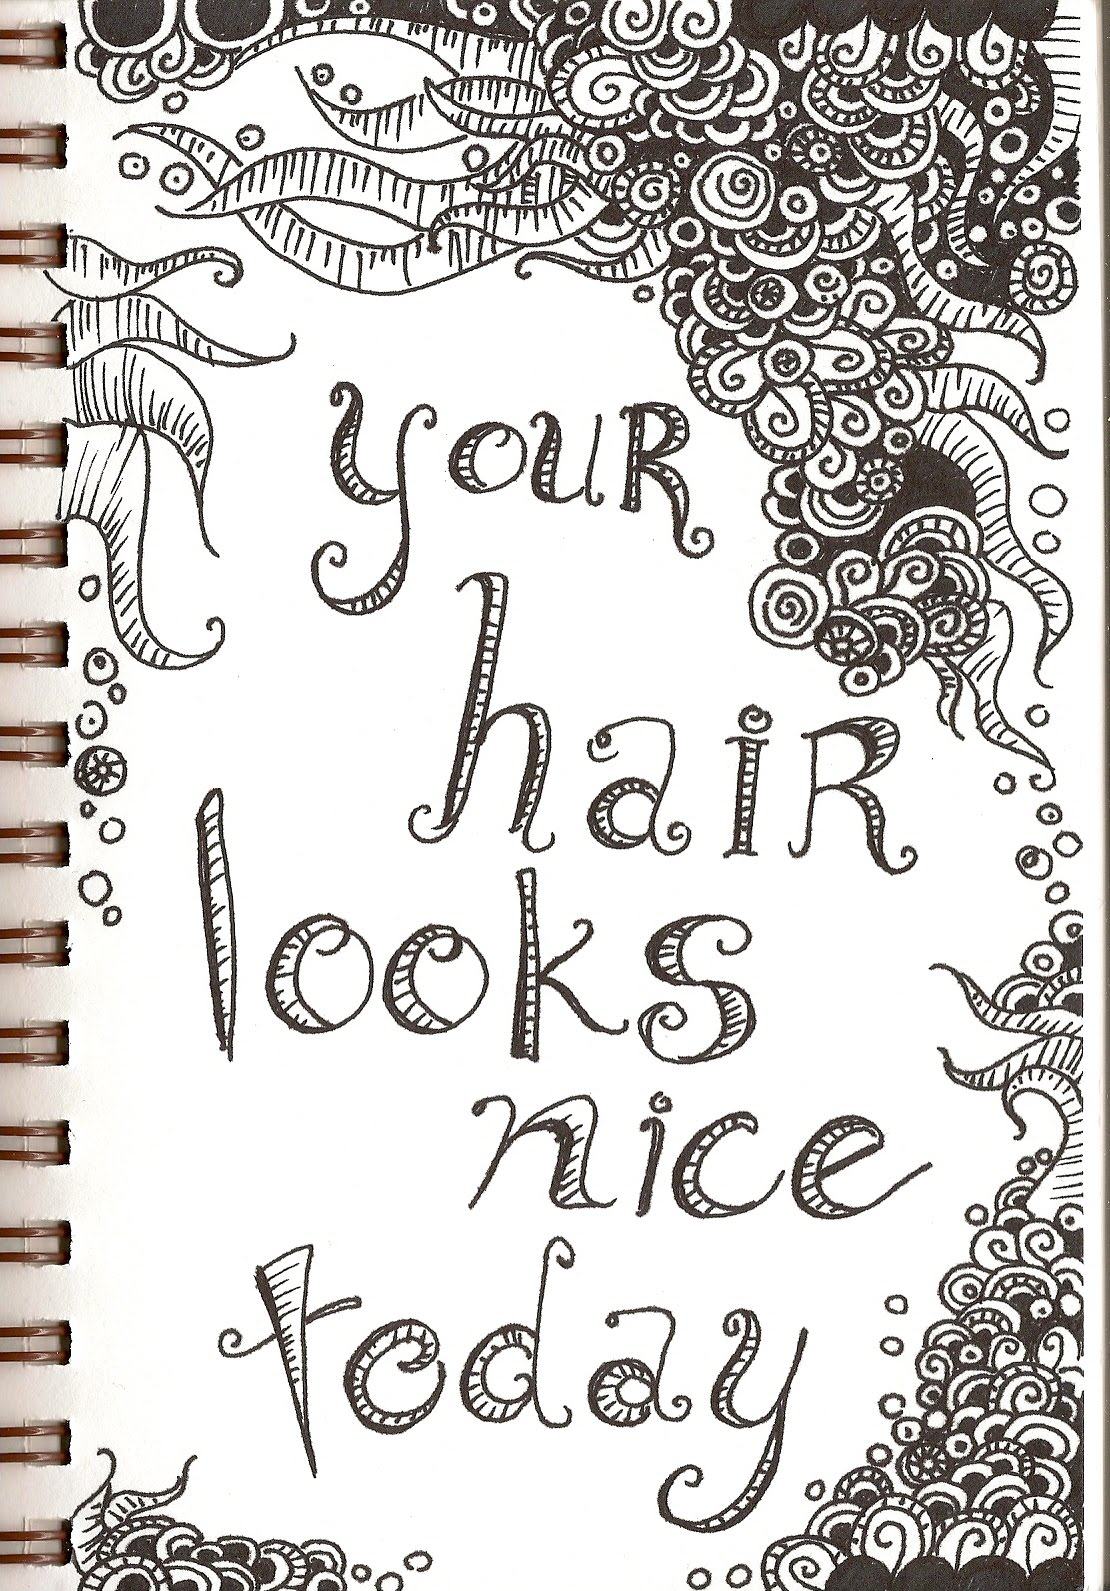 your
hair
looks
nice
today